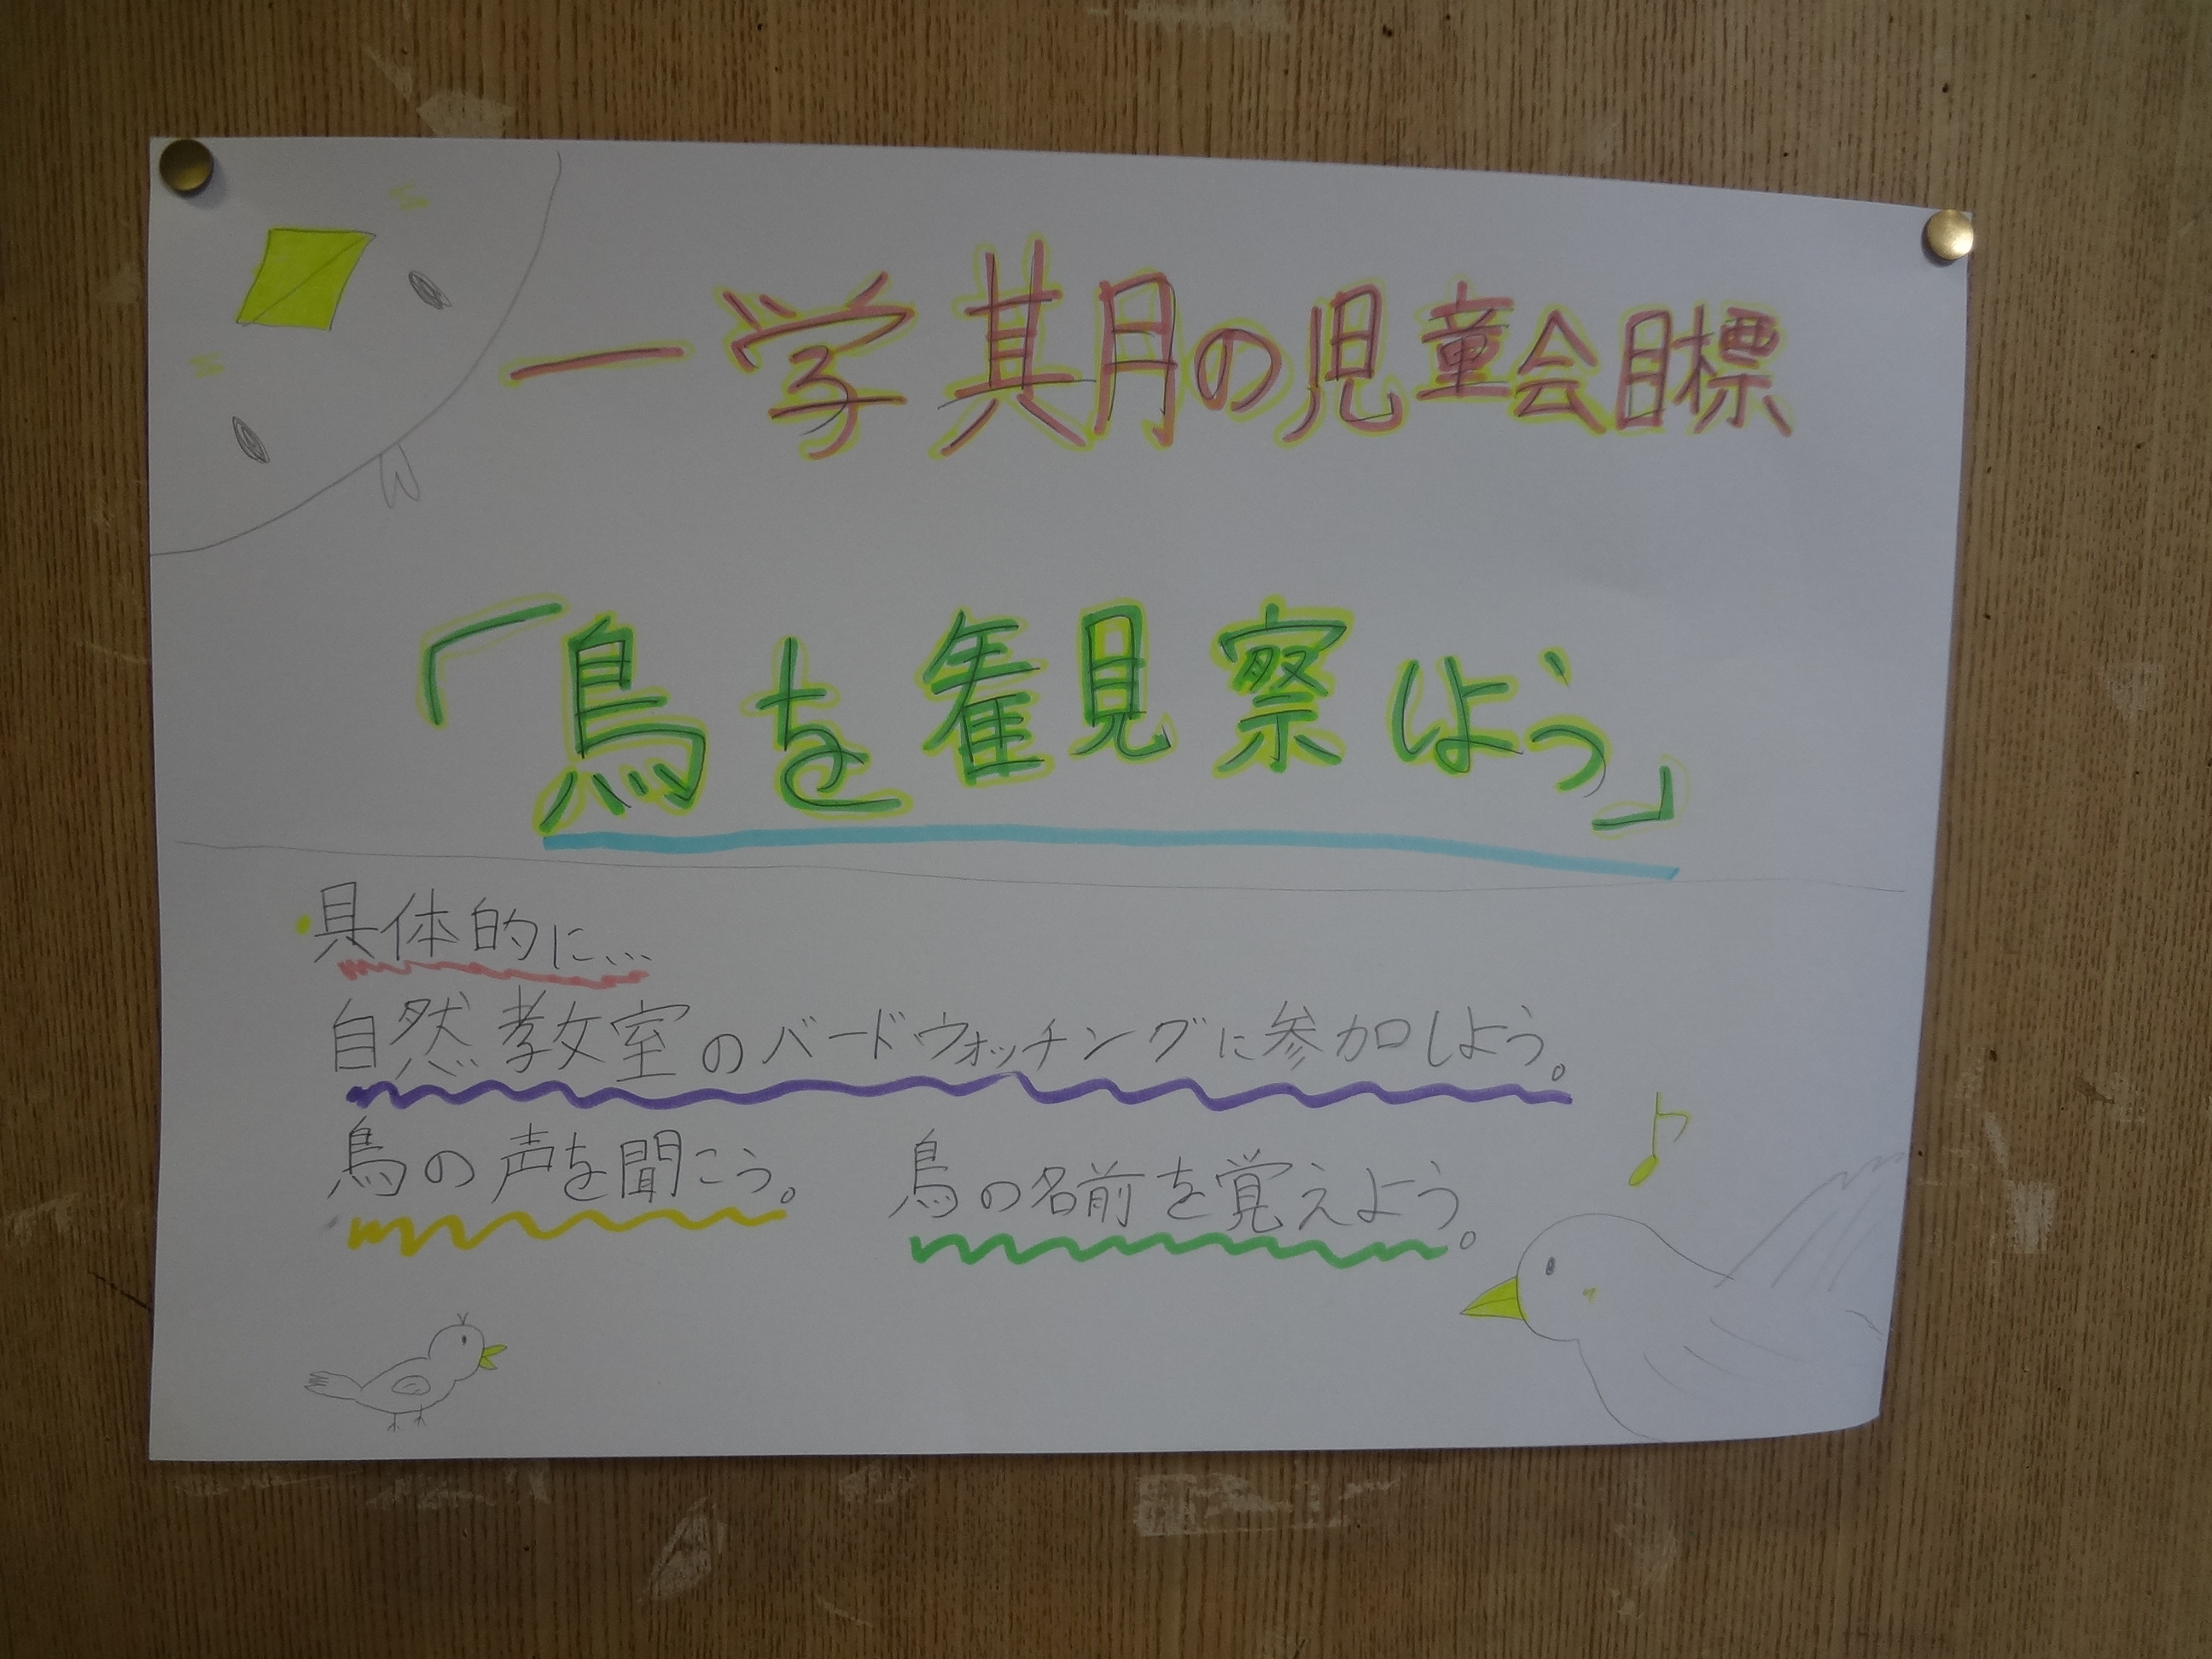 一学期の児童会目標
「鳥を観察しよう」
具体的に…
自然教室のバードウォッチングに参加しよう。
鳥の声を聞こう。 鳥の名前を覚えよう。